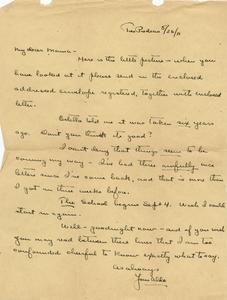 My dear Mamma -
Here is the little picture - when you
have looked at it please send in the enclosed
addressed envelope registered, together with enclosed
letter.
told me it was taken six years
ago. Don't you think its good?
I can't deny that things seem to be
coming my way - I've had three awfully nice
letters since I've come back, and that is more than
I got in three weeks before.
The School begins Sept 4. Wish I could
start in again.
Well - goodnight now - and if you wish
you may read between these lines that I am too
confounded cheerful to know exactly what to say.
As always